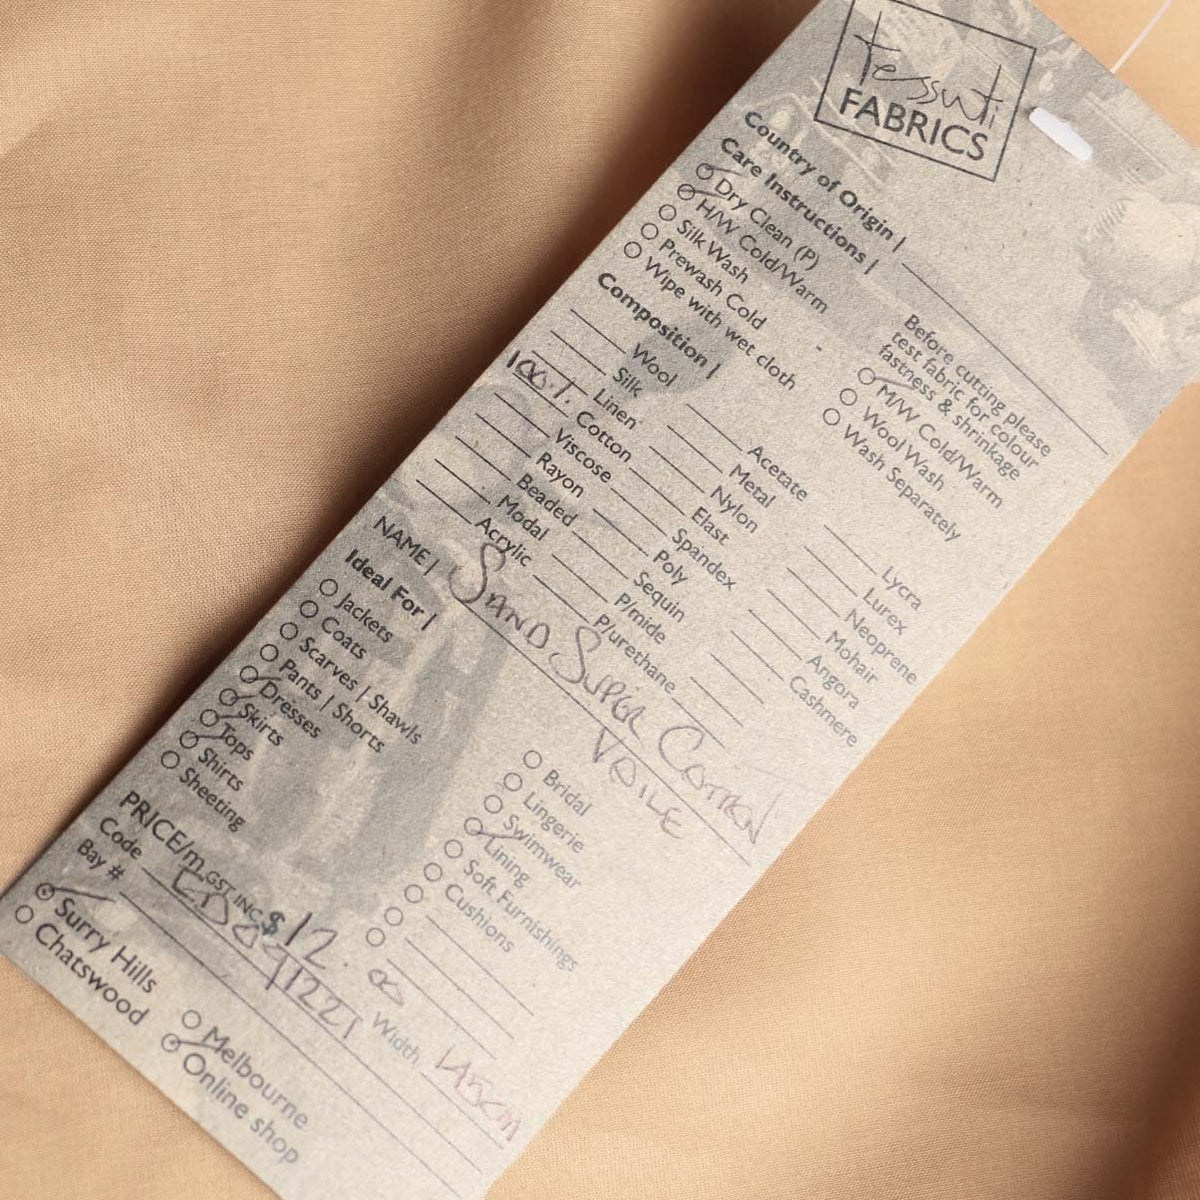 tessuti
FABRICS
Country of Origin |
Care Instructions |
Dry Clean (P)
H/W Cold/Warm
Silk Wash
Prewash Cold
Wipe with wet cloth
Before cutting please
test fabric for colour
fastness & shrinkage
M/W Cold/Warm
Wool Wash
Wash Separately
Composition |
Wool
Silk
Linen
100% Cotton
Viscose
Rayon
Beaded
Modal
Acrylic
Acetate
Metal
Nylon
Elast
Spandex
Poly
Sequin
P/mide
P/urethane
Lycra
Lurex
Neoprene
Mohair
Angora
Cashmere
NAME | SAND SUPER COTTON
VOILE
Ideal For |
Jackets
Coats
Scarves | Shawls
Pants | Shorts
Dresses
Skirts
Tops
Shirts
Sheeting
Bridal
Lingerie
Swimwear
Lining
Soft Furnishings
Cushions
PRICE/m GST INC $ 12.00
Code
Width
Bay #
Surry Hills
Chatswood
Melbourne
Online shop